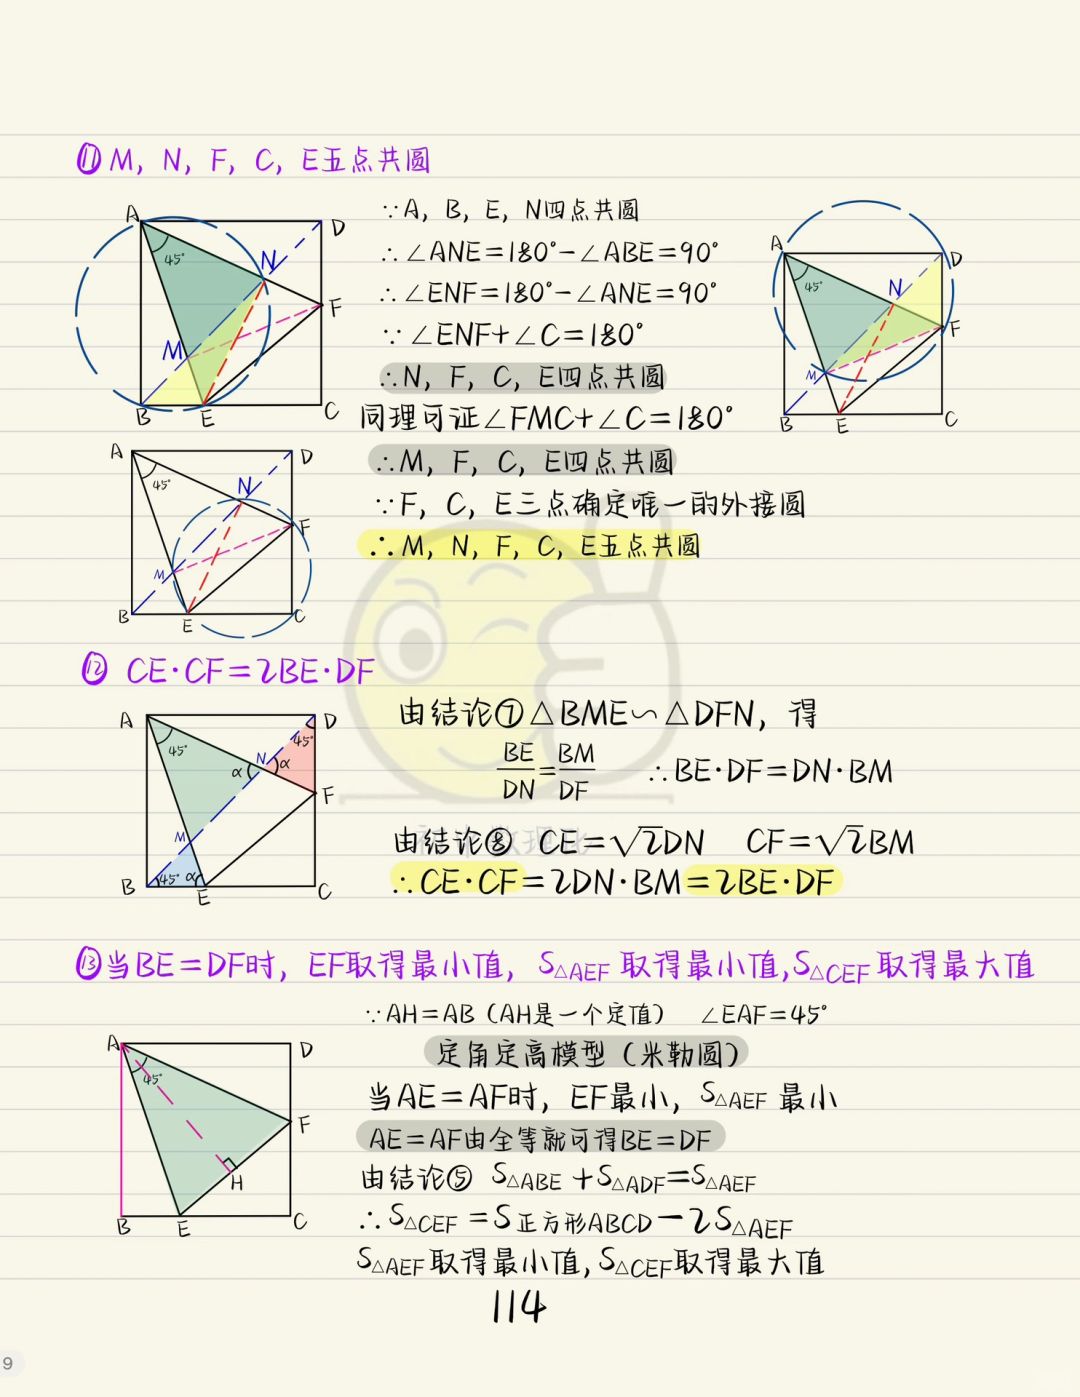 ⑪M, N, F, C, E五点共圆
∵A, B, E, N四点共圆
∴∠ANE=180°-∠ABE=90°
∴∠ENF=180°-∠ANE=90°
∵∠ENF+∠C=180°
∴N, F, C, E四点共圆
同理可证∠FMC+∠C=180°
∴M, F, C, E四点共圆
∵F, C, E三点确定唯一的外接圆
∴M, N, F, C, E五点共圆
A
D
N
45°
F
M
B
E
C
A
D
N
45°
F
M
B
E
C
A
D
N
45°
F
M
B
E
C
⑫ CE·CF=2BE·DF
由结论⑦△BME∽△DFN, 得
BE/DN=BM/DF ∴BE·DF=DN·BM
由结论⑧ CE=√2DN CF=√2BM
∴CE·CF=2DN·BM=2BE·DF
A
D
45°
45°
N
α
α
F
M
45°
α
B
E
C
⑬当BE=DF时, EF取得最小值, S△AEF取得最小值,S△CEF取得最大值
∵AH=AB（AH是一个定值） ∠EAF=45°
定角定高模型（米勒圆）
当AE=AF时, EF最小, S△AEF最小
AE=AF由全等就可得BE=DF
由结论⑤ S△ABE+S△ADF=S△AEF
∴S△CEF=S正方形ABCD-2S△AEF
S△AEF取得最小值,S△CEF取得最大值
A
D
45°
F
H
B
E
C
114
9